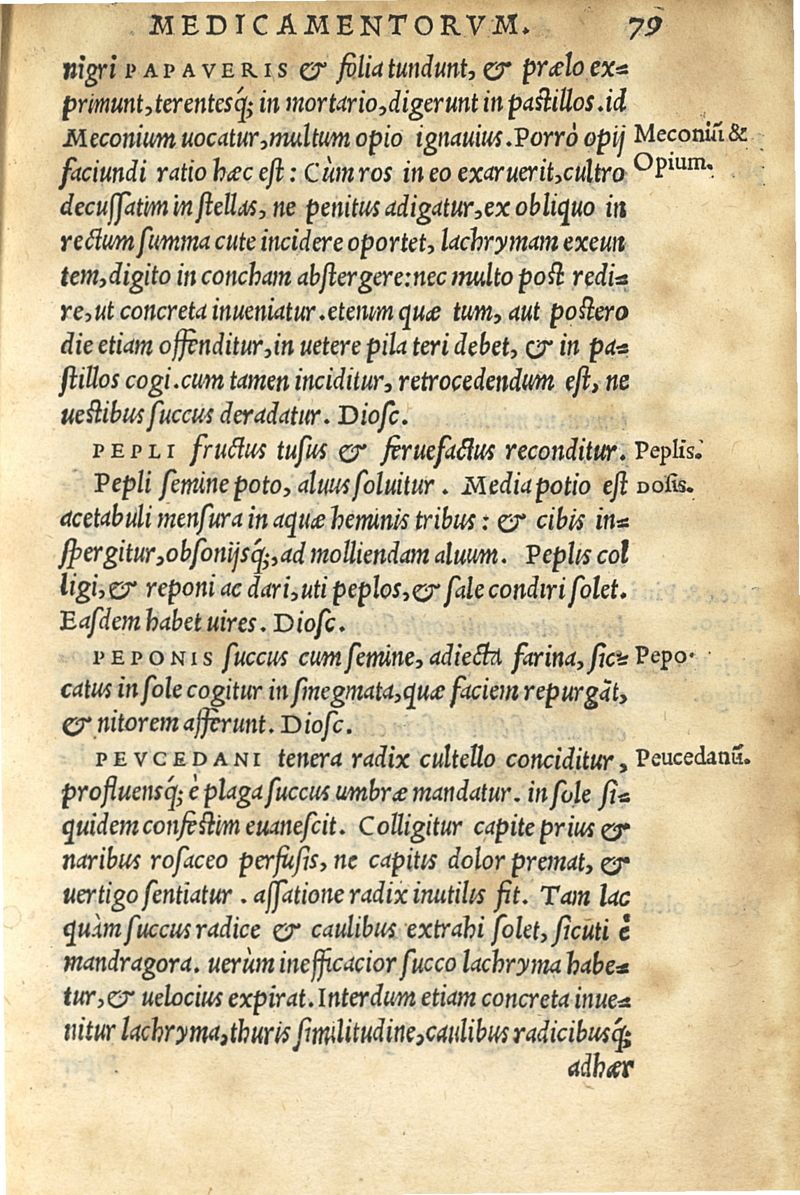 MEDICAMENTORVM. 79
nigri PAPAVERIS & folia tundunt, & prælo ex=
primunt, terentesq́; in mortario, digerunt in pastillos. id
Meconium uocatur, multum opio ignauius. Porrò opij
Meconiũ &
Opium.
faciundi ratio hæc est: Cùm ros in eo exaruerit, cultro
decussatim in stellas, ne penitus adigatur, ex obliquo in
rectum summa cute incidere oportet, lachrymam exeun
tem, digito in concham abstergere: nec multo post redi=
re, ut concreta inueniatur. etenim quæ tum, aut postero
die etiam offenditur, in uetere pila teri debet, & in pa=
stillos cogi. cum tamen inciditur, retrocedendum est, ne
uestibus succus deradatur. Diosc.
PEPLI fructus tusus & feruefactus reconditur. Peplis.
Pepli semine poto, aluus soluitur. Media potio est Dosis.
acetabuli mensura in aquæ heminis tribus: & cibis in=
spergitur, obsonijsq́;, ad molliendam aluum. Peplis col
ligi, & reponi ac dari, uti peplos, & sale condiri solet.
Easdem habet uires. Diosc.
PEPONIS succus cum semine, adiecta farina, sic= Pepo.
catus in sole cogitur in smegmata, quæ faciem repurgãt,
& nitorem afferunt. Diosc.
PEVCEDANI tenera radix cultello conciditur, Peucedanũ.
profluensq́; è plaga succus umbræ mandatur. in sole si=
quidem confestim euanescit. Colligitur capite prius &
naribus rosaceo perfusis, ne capitis dolor premat, &
uertigo sentiatur. assatione radix inutilis fit. Tam lac
quàm succus radice & caulibus extrahi solet, sicuti è
mandragora. uerùm inefficacior succo lachryma habe=
tur, & uelocius expirat. Interdum etiam concreta inue=
nitur lachryma, thuris similitudine, caulibus radicibusq́;
adhær